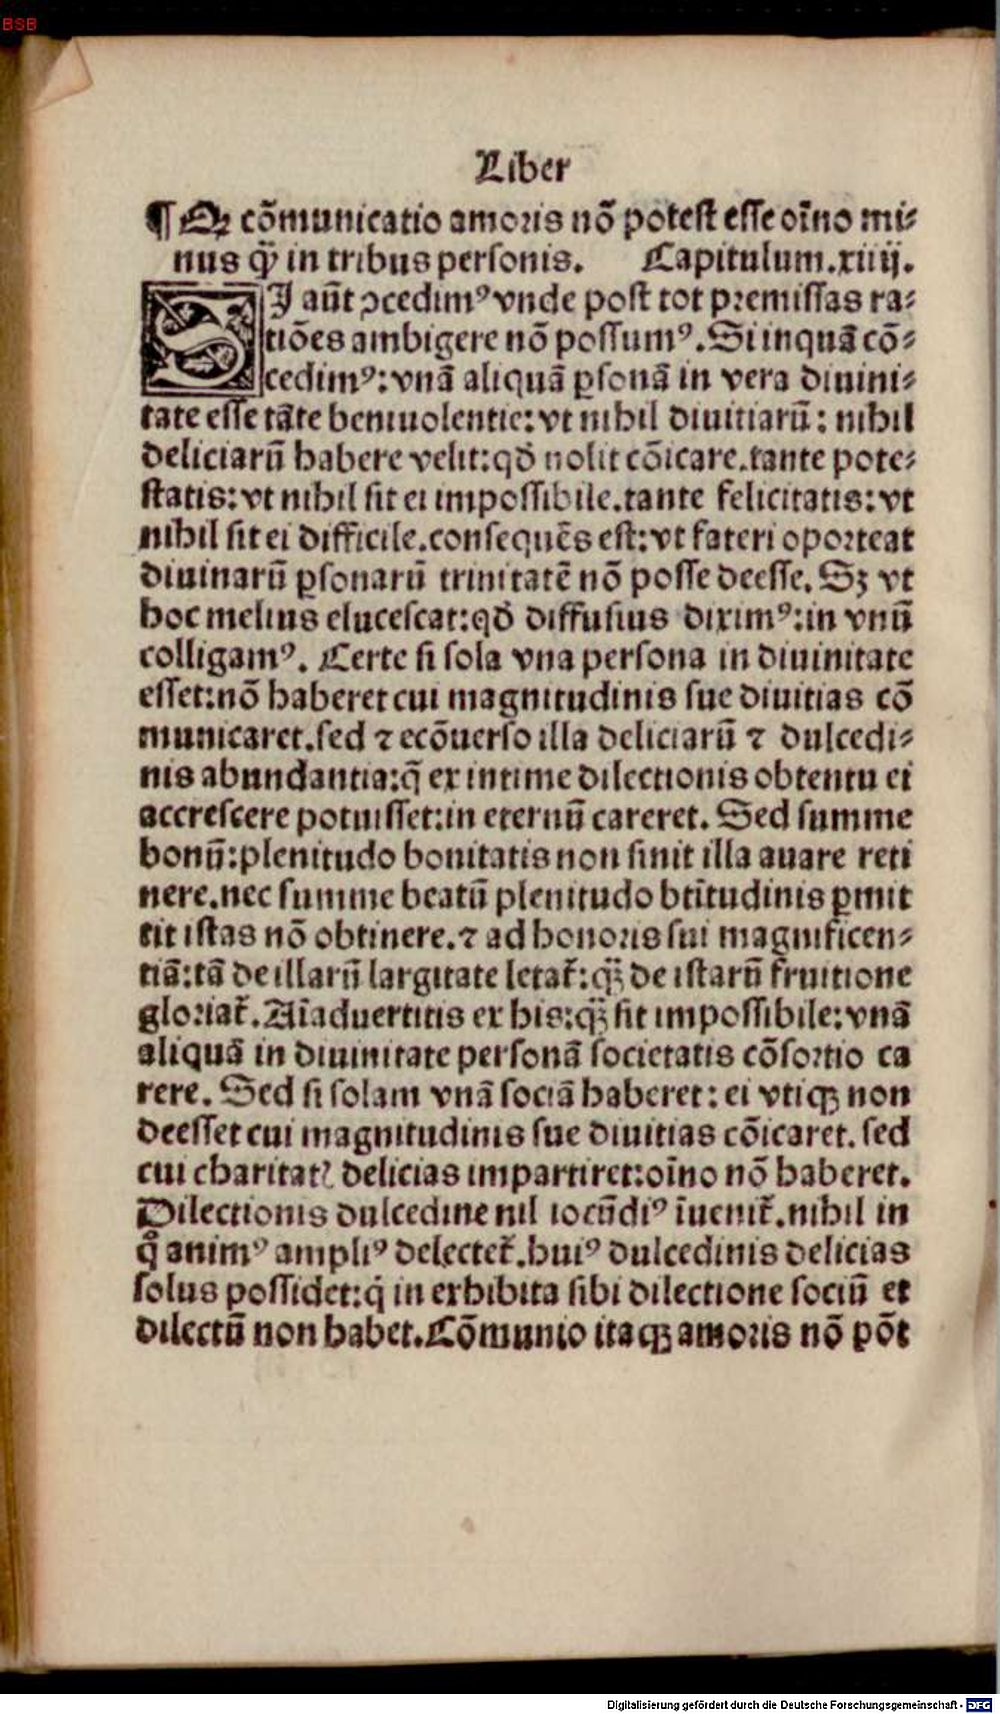 BSB
Liber
¶ Qꝫ cõmunicatio amoris nõ potest esse oĩno mi⸗
nus q̃ in tribus personis. Capitulum.xiiij.
SJ aũt ꝯcedimꝰ vnde post tot premissas ra⸗
tiões ambigere nõ possumꝰ. Si inquã cõ⸗
cedimꝰ: vnã aliquã ꝑsonã in vera diuini⸗
tate esse tãte beniuolentie: vt nihil diuitiarũ: nihil
deliciarũ habere velit: qđ nolit cõicare. tante pote⸗
statis: vt nihil sit ei impossibile. tante felicitatis: vt
nihil sit ei difficile. consequẽs est: vt fateri oporteat
diuinarũ ꝑsonarũ trinitatẽ nõ posse deesse. Sꝫ vt
hoc melius elucescat: qđ diffusius diximꝰ: in vnũ
colligamꝰ. Certe si sola vna persona in diuinitate
esset: nõ haberet cui magnitudinis sue diuitias cõ
municaret. sed ⁊ ecõuerso illa deliciarũ ⁊ dulcedi⸗
nis abundantia: q̃ ex intime dilectionis obtentu ei
accrescere potuisset: in eternũ careret. Sed summe
bonũ: plenitudo bonitatis non sinit illa auare reti
nere. nec summe beatũ plenitudo btĩtudinis ꝑmit
tit istas nõ obtinere. ⁊ ad honoris sui magnificen⸗
tiã: tã de illarũ largitate letat̃: qꝫ̃ de istarũ fruitione
gloriat̃. Aĩaduertitis ex his: qꝫ̃ sit impossibile: vnã
aliquã in diuinitate personã societatis cõsortio ca
rere. Sed si solam vnã sociã haberet: ei vtiqꝫ non
deesset cui magnitudinis sue diuitias cõicaret. sed
cui charitatꝭ delicias impartiret: oĩno nõ haberet.
Dilectionis dulcedine nil iocũdiꝰ ĩuenit̃. nihil in
q̊ animꝰ ampliꝰ delectet̃. huiꝰ dulcedinis delicias
solus possidet: q̇ in exhibita sibi dilectione sociũ et
dilectũ non habet. Cõmunio itaqꝫ amoris nõ põt
Digitalisierung gefördert durch die Deutsche Forschungsgemeinschaft - DFG